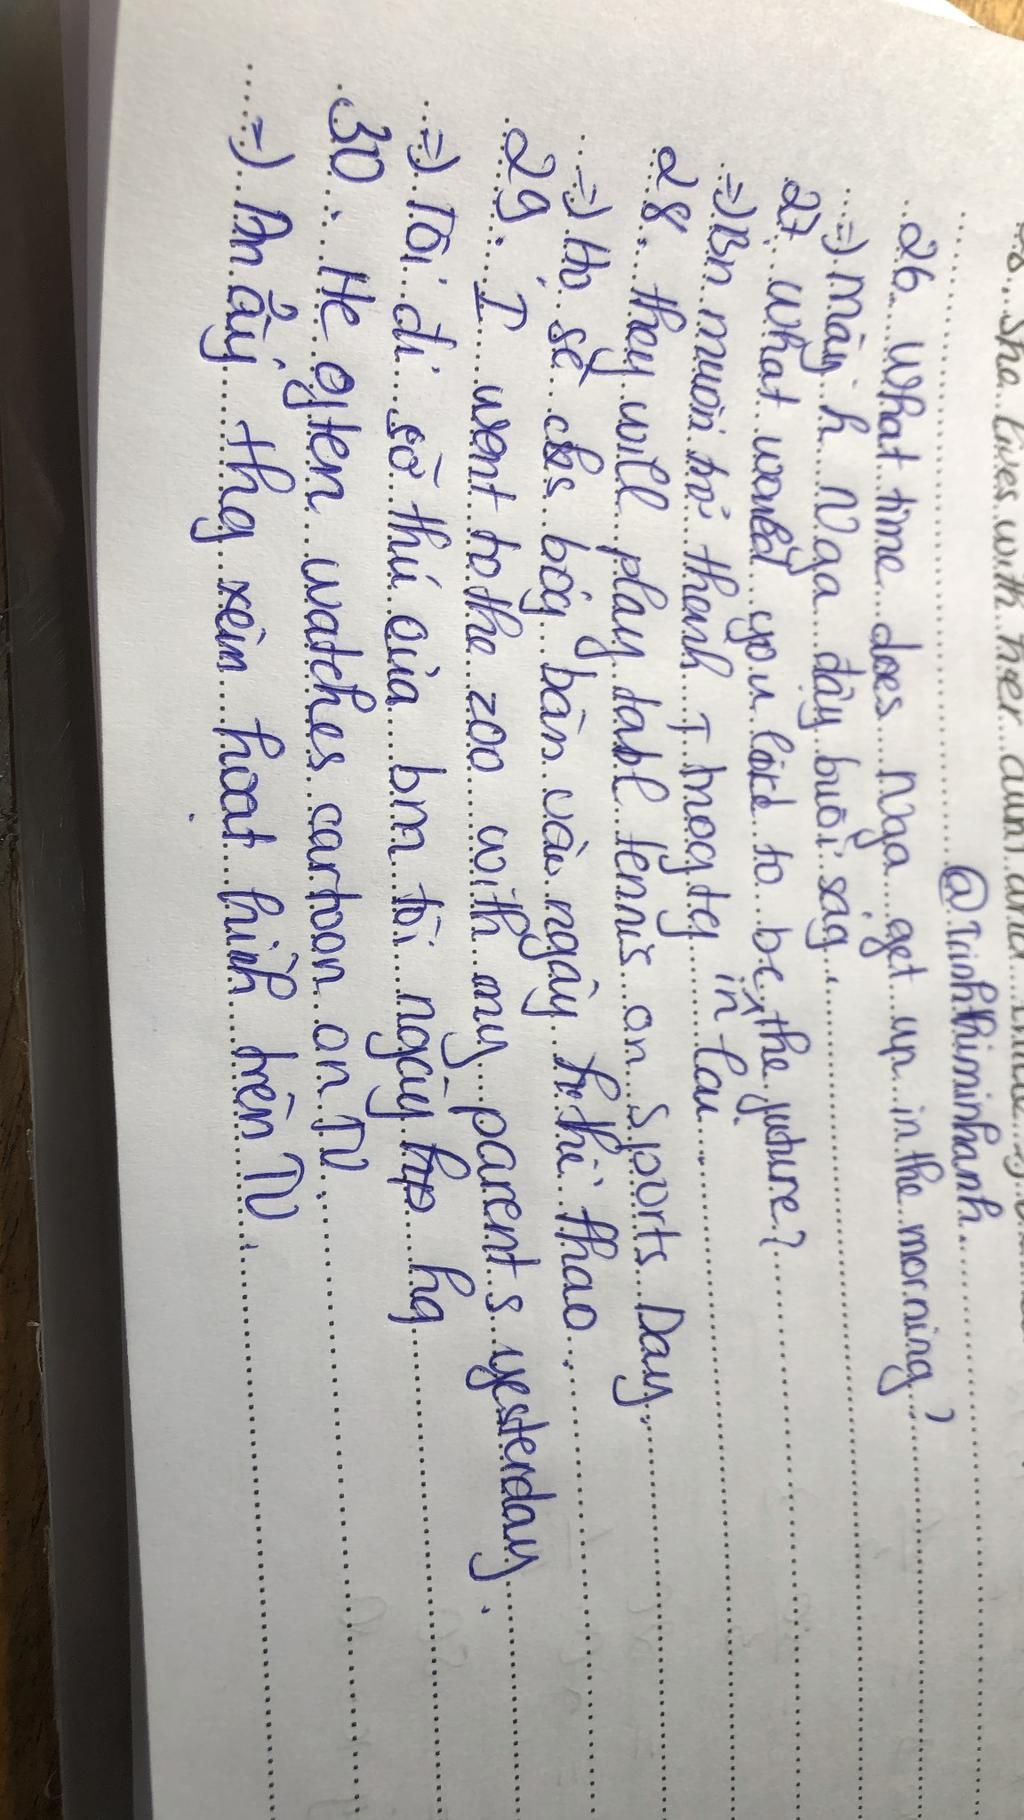 She lives with her aunt and
@Trinhthiminhanh
26. What time does Nga get up in the morning?
=) mấy h Nga dậy buổi ság.
27. What would you like to be in the juture?
=) Bn muốn trở thành j trog tg lai.
28. they will play tabl tennis on Sports Day.
=) Họ sẽ chs bóg bàn vào ngày h thể thao.
29. I went to the zoo with my parents yesterday.
=) Tôi đi sở thú của bm tôi ngày hq
30. He often watches cartoon on TV.
=) An ấy thg xem hoạt hình trên TV.